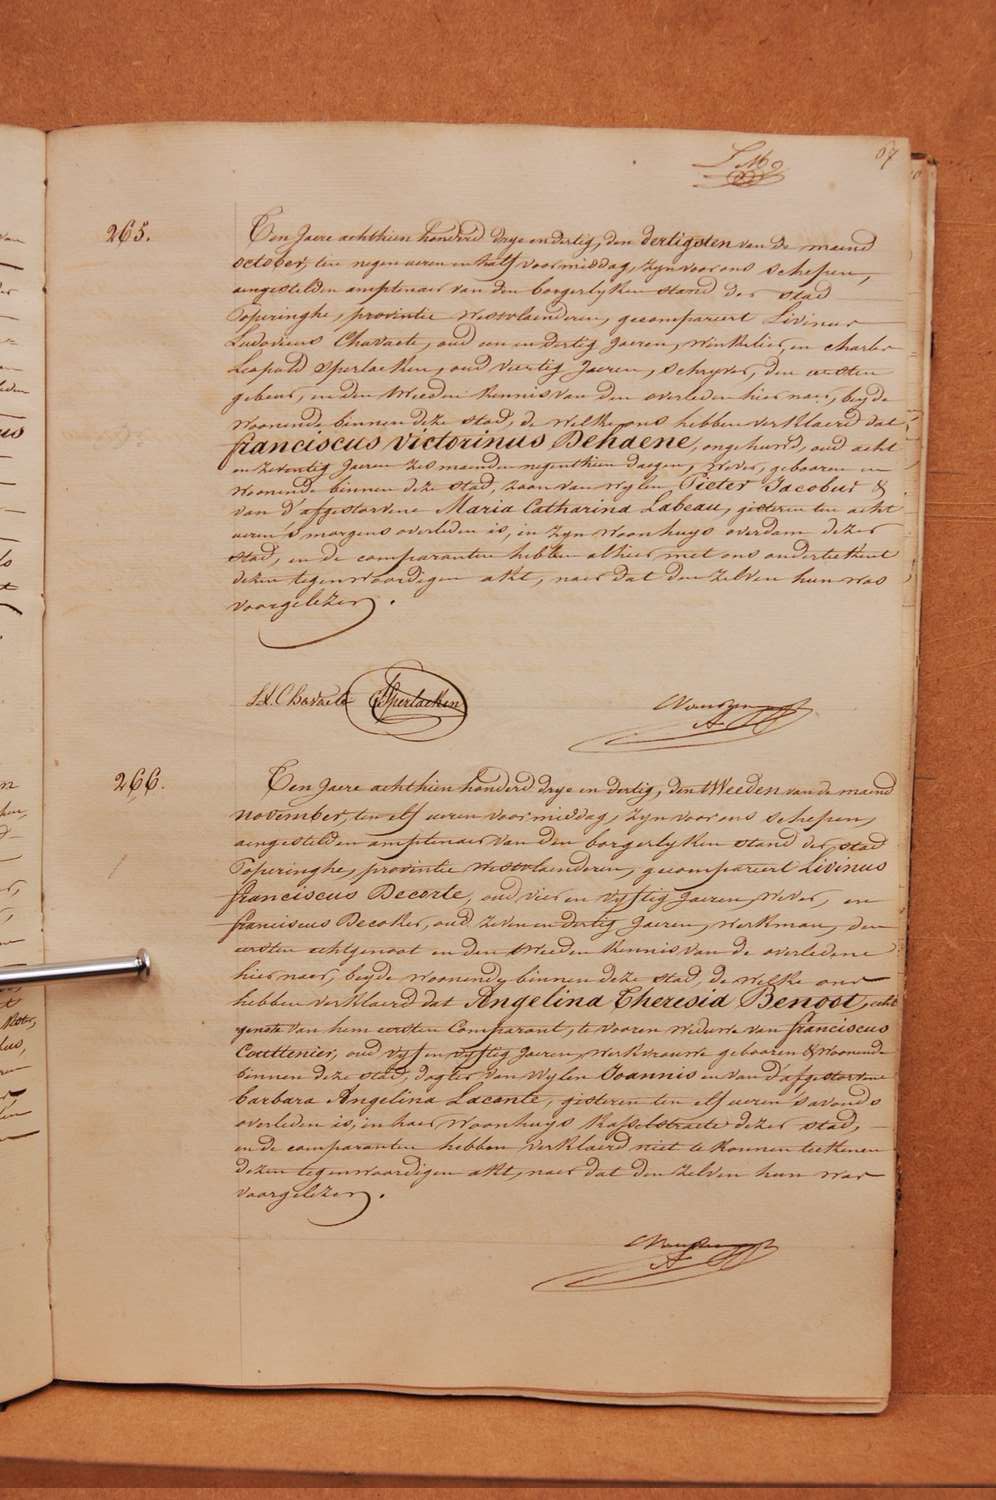 67
265.
Ten Jaere achthien honderd drye en dertig, den dertigsten van de maend
october, ten negen ueren en half voormiddag, zyn voor ons schepen,
aengestelden amptenaer van den borgerlyken stand der stad
Poperinghe, provintie westvlaenderen, gecompareert Livinus
Ludovicus Chavaete, oud een en dertig Jaeren, winkelier, en charles
Leopold Sperlaeken, oud viertig Jaeren, schryver, den eersten
gebeur, en den tweeden kennis van den overleden hier naer, beyde
woonende binnen deze stad, de welke ons hebben verklaerd dat
franciscus victorinus Dehaene, ongehuwd, oud acht
en zeventig Jaeren zes maenden negenthien daegen, wever, gebooren en
woonende binnen deze stad, zoon van wylen Pieter Jacobus &
van d'afgestorvene Maria Catharina Labeau, gisteren ten acht
ueren 's morgens overleden is, in zyn woonhuys overdam dezer
stad, en de comparanten hebben alhier met ons onderteekent
dezen tegenwoordigen akt, naer dat den zelven hun was
voorgelezen.
L.L. Chavaete Sperlaeken
266.
Ten Jaere achthien honderd drye en dertig, den tWeeden van de maend
november, ten elf ueren voormiddag, zyn voor ons schepen,
aengestelden amptenaer van den borgerlyken stand der stad
Poperinghe, provintie westvlaenderen, gecompareert Livinus
franciscus Decorte, oud vier en vyftig Jaeren, wever, en
franciscus Decoker, oud zeven en dertig Jaeren, werkman, den
eersten echtgenoot en den tweeden kennis van de overledene
hier naer, beyde woonende binnen deze stad, de welke ons
hebben verklaerd dat Angelina Theresia Benoot, echt
genote van hem eersten Comparant, te vooren weduwe van franciscus
Couttenier, oud vyf en vyftig Jaeren, werkvrouwe gebooren & woonende
binnen deze stad, dogter van wylen Joannis en van d'afgestorvene
barbara Angelina Laconte, gisteren ten elf ueren 's avonds
overleden is, in haer woonhuys Kasselstraete dezer stad,
en de comparanten hebben verklaerd niet te konnen teekenen
dezen tegenwoordigen akt, naer dat den zelven hun was
voorgelezen.